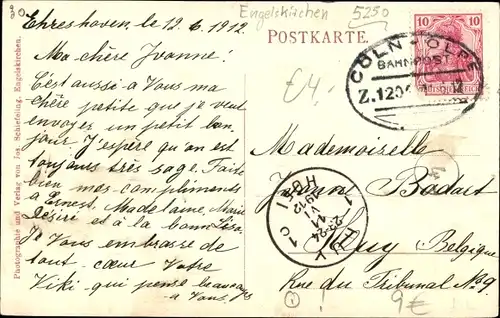 Engelskirchen
5250
Ehreshoven, le 12. 6. 1912.
Ma chère Yvonne!
C'est aussi à Vous ma
chère petite que je veux
envoyer un petit bon-
jour. J'espère qu'on est
toujours très sage. Faites
bien mes compliments
à Ernest, Madelaine, Marie
Désiré et à la bonne Lisa.
Je Vous embrasse de
tout cœur Votre
Viki qui pense beaucoup
à Vous.
POSTKARTE.
€4,-
CÖLN - OLPE
BAHNPOST
Z.1204
10
10
DEUTSCHES REICH
Mademoiselle
Yvonne Bodart
Huy Belgique
Rue du Tribunal No 9.
HUY
1 C 1
HOEI
9€
Photographie und Verlag von Jos. Schiefeling, Engelskirchen.